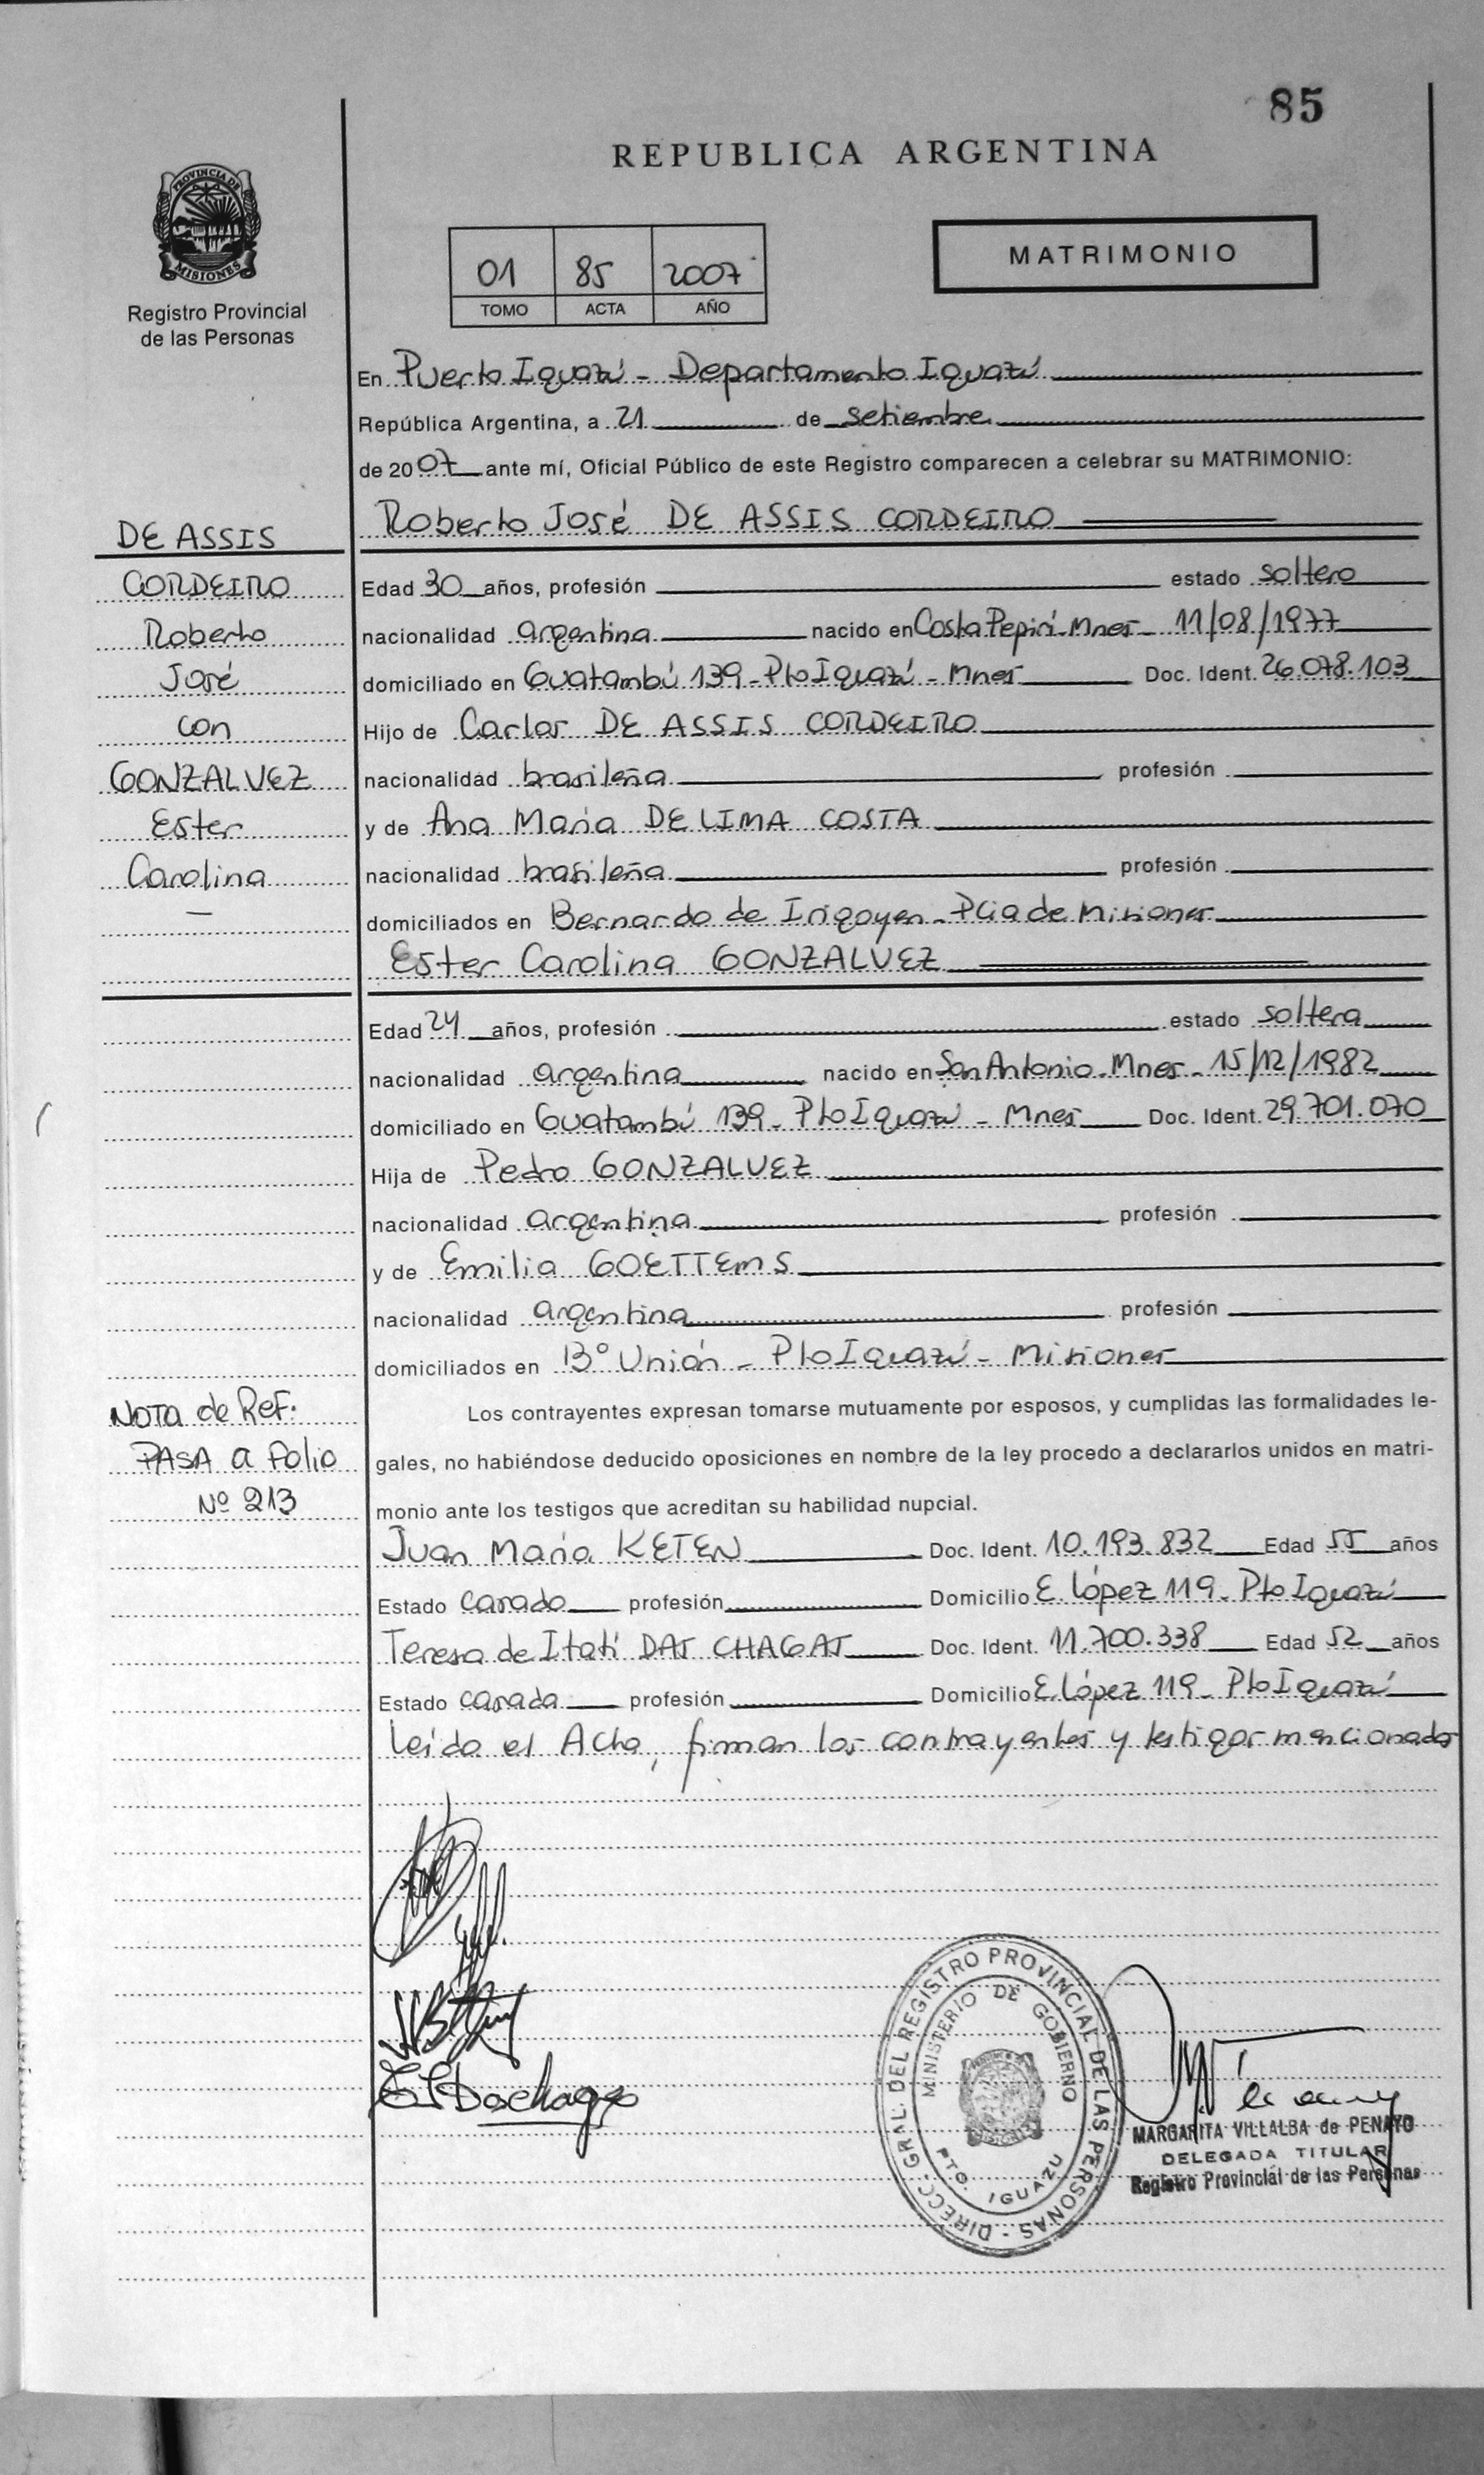 85
REPUBLICA ARGENTINA
PROVINCIA DE
MISIONES
Registro Provincial
de las Personas
01 85 2007
TOMO ACTA AÑO
MATRIMONIO
En Puerto Iguazú - Departamento Iguazú
República Argentina, a 21 de setiembre
de 2007 ante mí, Oficial Público de este Registro comparecen a celebrar su MATRIMONIO:
Roberto José DE ASSIS CORDEIRO
DE ASSIS
CORDEIRO
Roberto
José
con
GONZALVEZ
Ester
Carolina
—
Edad 30 años, profesión estado soltero
nacionalidad argentina nacido en Costa Pepirí - Mnes - 11/08/1977
domiciliado en Guatambú 139 - Pto Iguazú - Mnes Doc. Ident. 26.078.103
Hijo de Carlos DE ASSIS CORDEIRO
nacionalidad brasileña profesión
y de Ana María DE LIMA COSTA
nacionalidad brasileña profesión
domiciliados en Bernardo de Irigoyen - Pcia de Misiones
Ester Carolina GONZALVEZ
Edad 24 años, profesión estado soltera
nacionalidad argentina nacido en San Antonio - Mnes - 15/12/1982
domiciliado en Guatambú 139 - Pto Iguazú - Mnes Doc. Ident. 29.701.070
Hija de Pedro GONZALVEZ
nacionalidad argentina profesión
y de Emilia GOETTEMS
nacionalidad argentina profesión
domiciliados en B° Unión - Pto Iguazú - Misiones
NOTA de Ref.
PASA a folio
Nº 213
Los contrayentes expresan tomarse mutuamente por esposos, y cumplidas las formalidades le-
gales, no habiéndose deducido oposiciones en nombre de la ley procedo a declararlos unidos en matri-
monio ante los testigos que acreditan su habilidad nupcial.
Juan María KETEN Doc. Ident. 10.193.832 Edad 55 años
Estado casado profesión Domicilio E. López 119 - Pto Iguazú
Teresa de Itatí DAS CHAGAS Doc. Ident. 11.700.338 Edad 52 años
Estado casada profesión Domicilio E. López 119 - Pto Iguazú
Leída el Acta, firman los contrayentes y testigos mencionados
DIRECC. GRAL. DEL REGISTRO PROVINCIAL DE LAS PERSONAS -
MINISTERIO DE GOBIERNO
PTO. IGUAZU
MARGARITA VILLALBA de PENAYO
DELEGADA TITULAR
Registro Provincial de las Personas